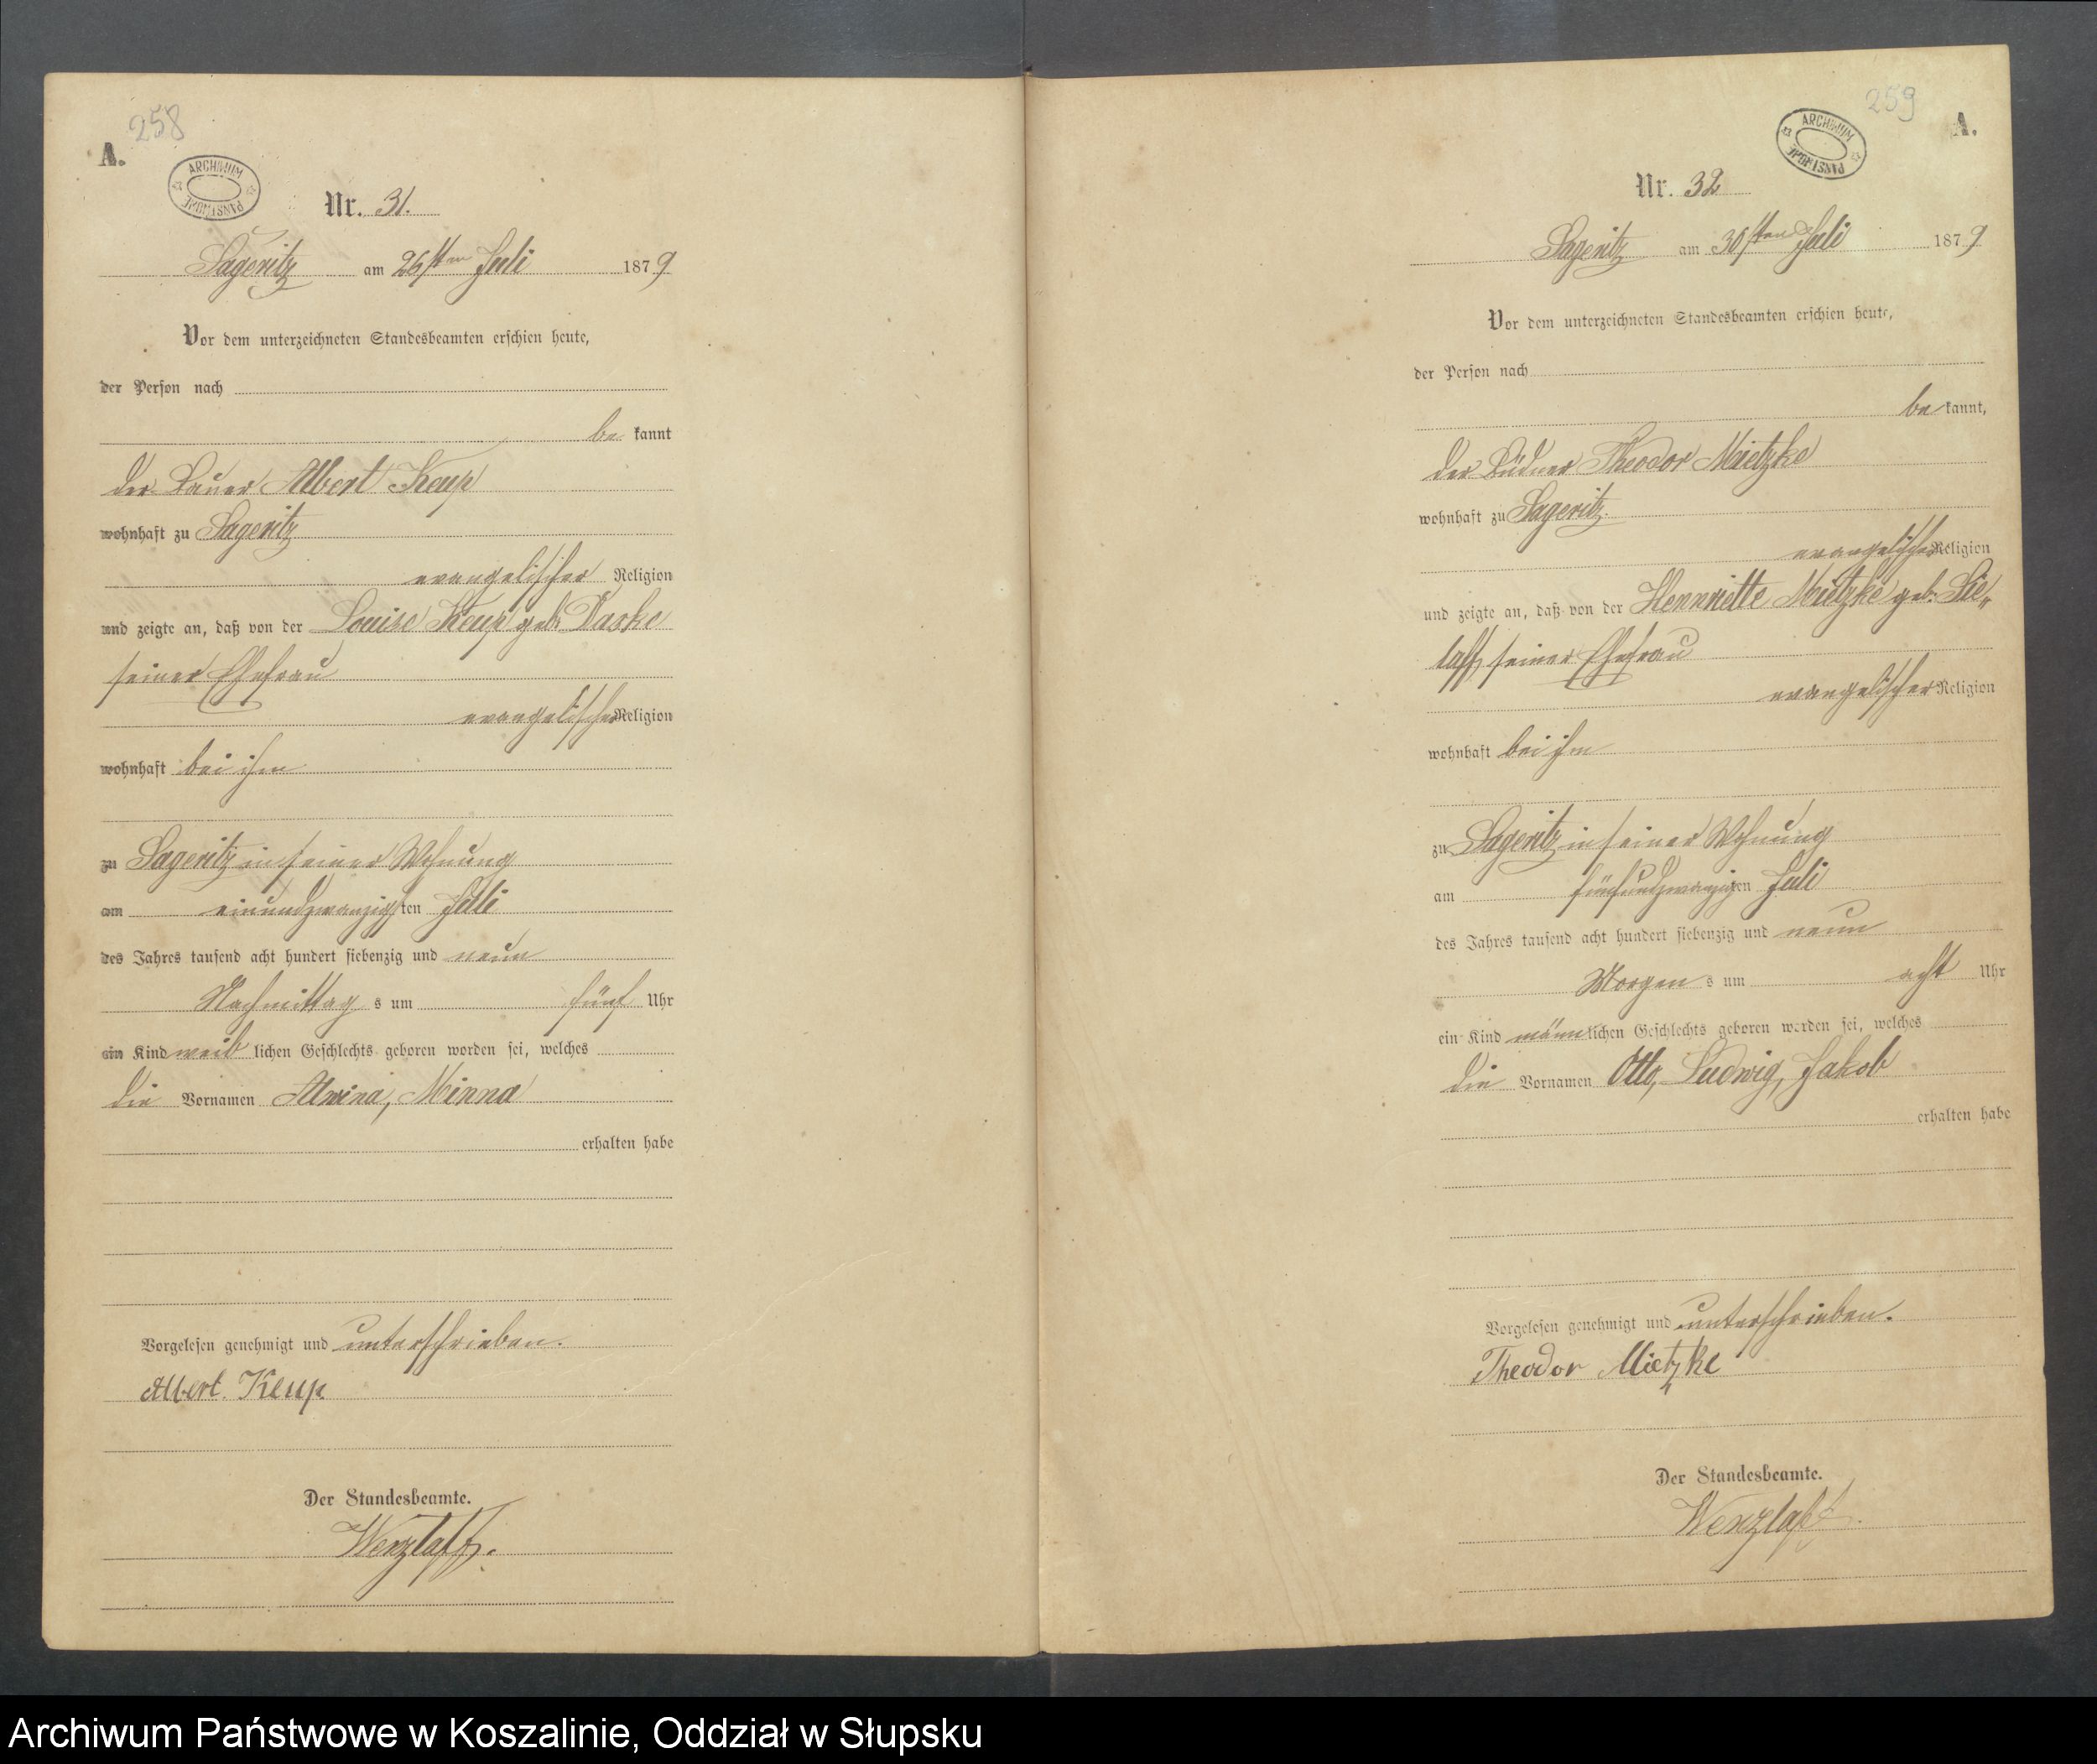 258
A.
ARCHIWUM PAŃSTWOWE
Nr. 31.
Sageritz am 26sten Juli 1879
Vor dem unterzeichneten Standesbeamten erschien heute,
der Person nach
be kannt
der Bauer Albert Keup
wohnhaft zu Sageritz
evangelischer Religion
und zeigte an, daß von der Louise Keup geb. Paske
seiner Ehefrau
evangelischer Religion
wohnhaft bei ihm
zu Sageritz in seiner Wohnung
am einundzwanzigsten Juli
des Jahres tausend acht hundert siebenzig und neun
Nachmittag s um fünf Uhr
ein Kind weib lichen Geschlechts geboren worden sei, welches
die Vornamen Alwina, Minna
erhalten habe
Vorgelesen genehmigt und unterschrieben.
Albert Keup
Der Standesbeamte.
Wenzlaff.
259
A.
ARCHIWUM PAŃSTWOWE
Nr. 32
Sageritz am 30sten Juli 1879
Vor dem unterzeichneten Standesbeamten erschien heute,
der Person nach
be kannt,
der Büdner Theodor Mietzke
wohnhaft zu Sageritz
evangelischer Religion
und zeigte an, daß von der Hennriette Mietzke geb. Sie„
laff, seiner Ehefrau
evangelischer Religion
wohnhaft bei ihm
zu Sageritz in seiner Wohnung
am fünfundzwanzigsten Juli
des Jahres tausend acht hundert siebenzig und neun
Morgen s um acht Uhr
ein Kind männlichen Geschlechts geboren worden sei, welches
die Vornamen Otto, Ludwig, Jakob
erhalten habe
Vorgelesen genehmigt und unterschrieben.
Theodor Mietzke
Der Standesbeamte.
Wenzlaff.
Archiwum Państwowe w Koszalinie, Oddział w Słupsku